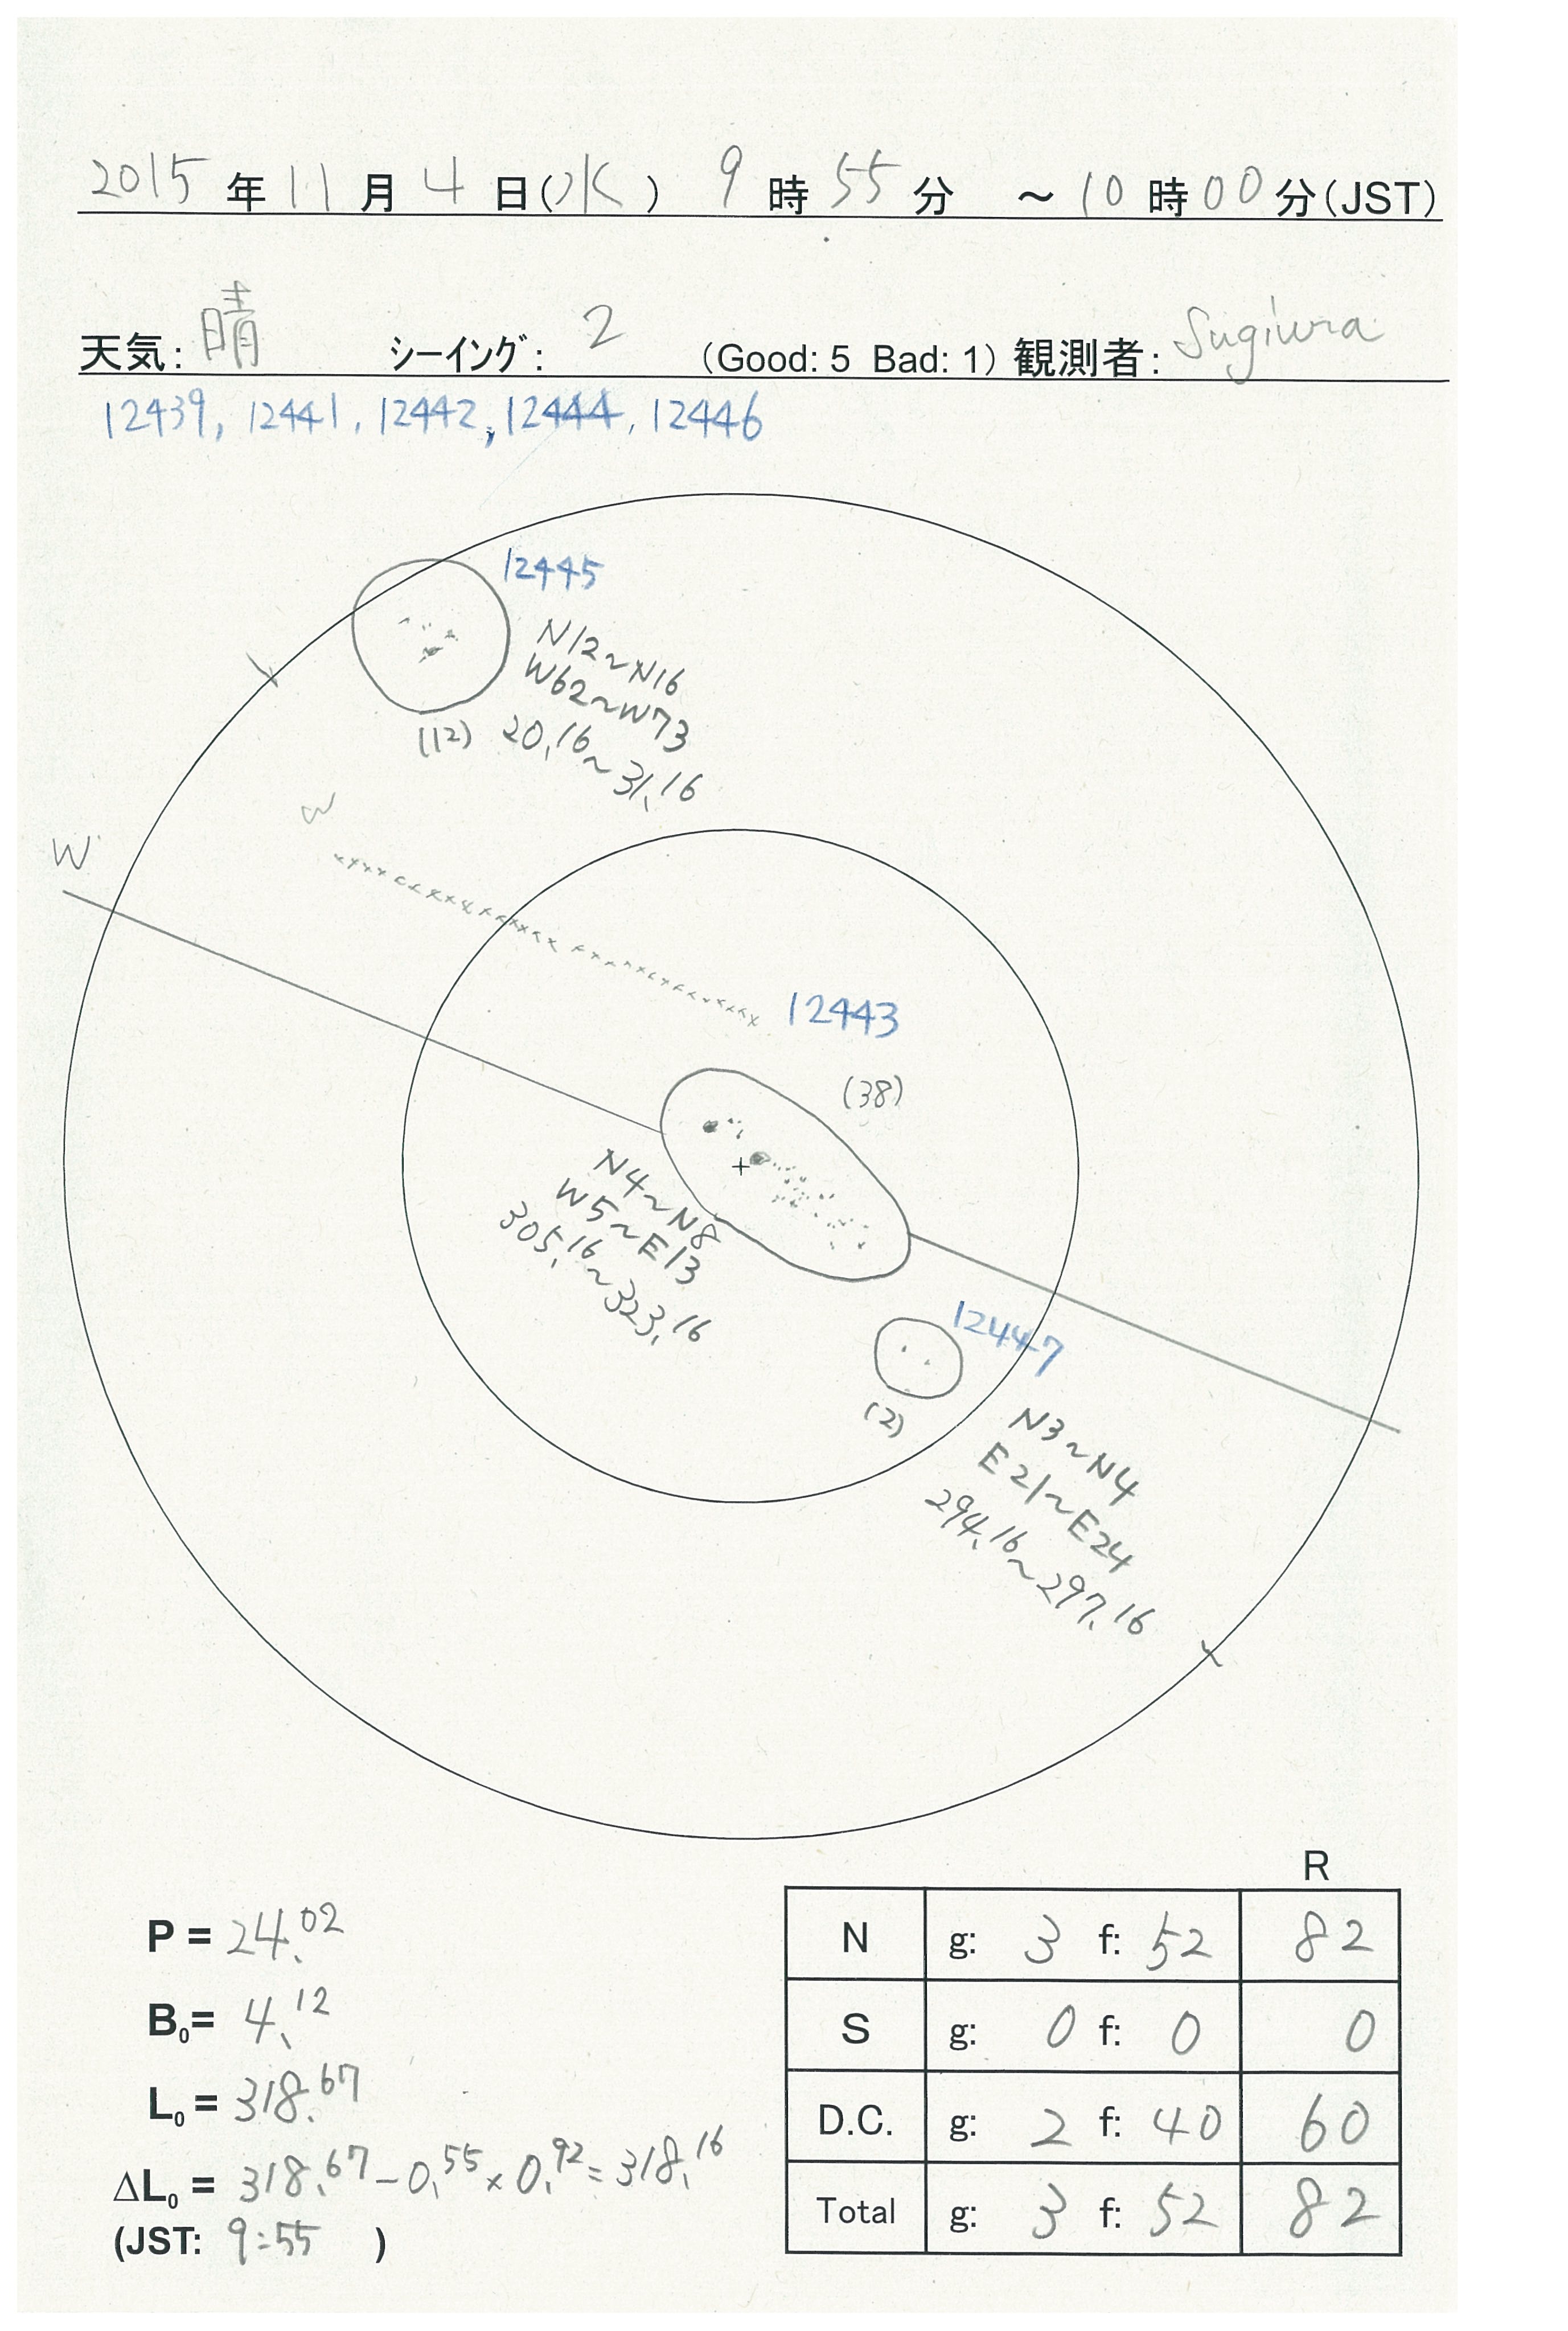 2015年11月4日(水) 9時55分 ~10時00分(JST)
天気: 晴 シーイング: 2 (Good: 5 Bad: 1) 観測者: Sugiura
12439, 12441, 12442, 12444, 12446
12445
N12~N16
W62~W73
(12) 20.16~31.16
W
W
12443
(38)
N4~N8
W5~E13
305.16~323.16
12447
(2)
N3~N4
E21~E24
294.16~297.16
R
N g: 3 f: 52 82
S g: 0 f: 0 0
D.C. g: 2 f: 40 60
Total g: 3 f: 52 82
P = 24.02
B0= 4.12
L0 = 318.67
ΔL0 = 318.67-0.55×0.92=318.16
(JST: 9:55 )